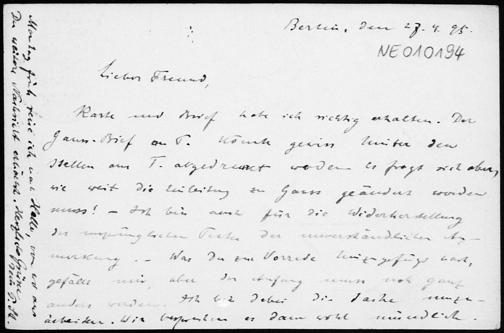 Berlin, den 27.4.95.
NE010194
Lieber Freund,
Karte und Brief habe ich richtig erhalten. Der
Gauss-Brief an T. könnte gewiss hinter den
Stellen aus T. abgedruckt werden. Es fragt sich aber,
wie weit die Einleitung zu Gauss geändert werden
muss! – Ich bin auch für die Wiederherstellung
des ursprünglichen Textes der unverständlichen An-
merkung. – Was Du am Vorrede hinzugefügt hast,
gefällt mir, aber der Anfang muss noch ganz
anders werden. Ich bin dabei die Sache umzu-
arbeiten. Wir besprechen es dann wohl mündlich.
Montag früh reise ich nach Halle, von wo aus
Du weitere Nachricht erhältst. Herzliche Grüsse
Dein